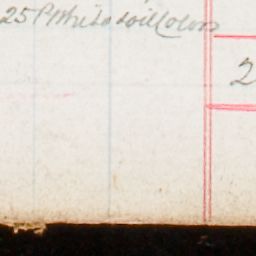 25 P White & oil Colors
2